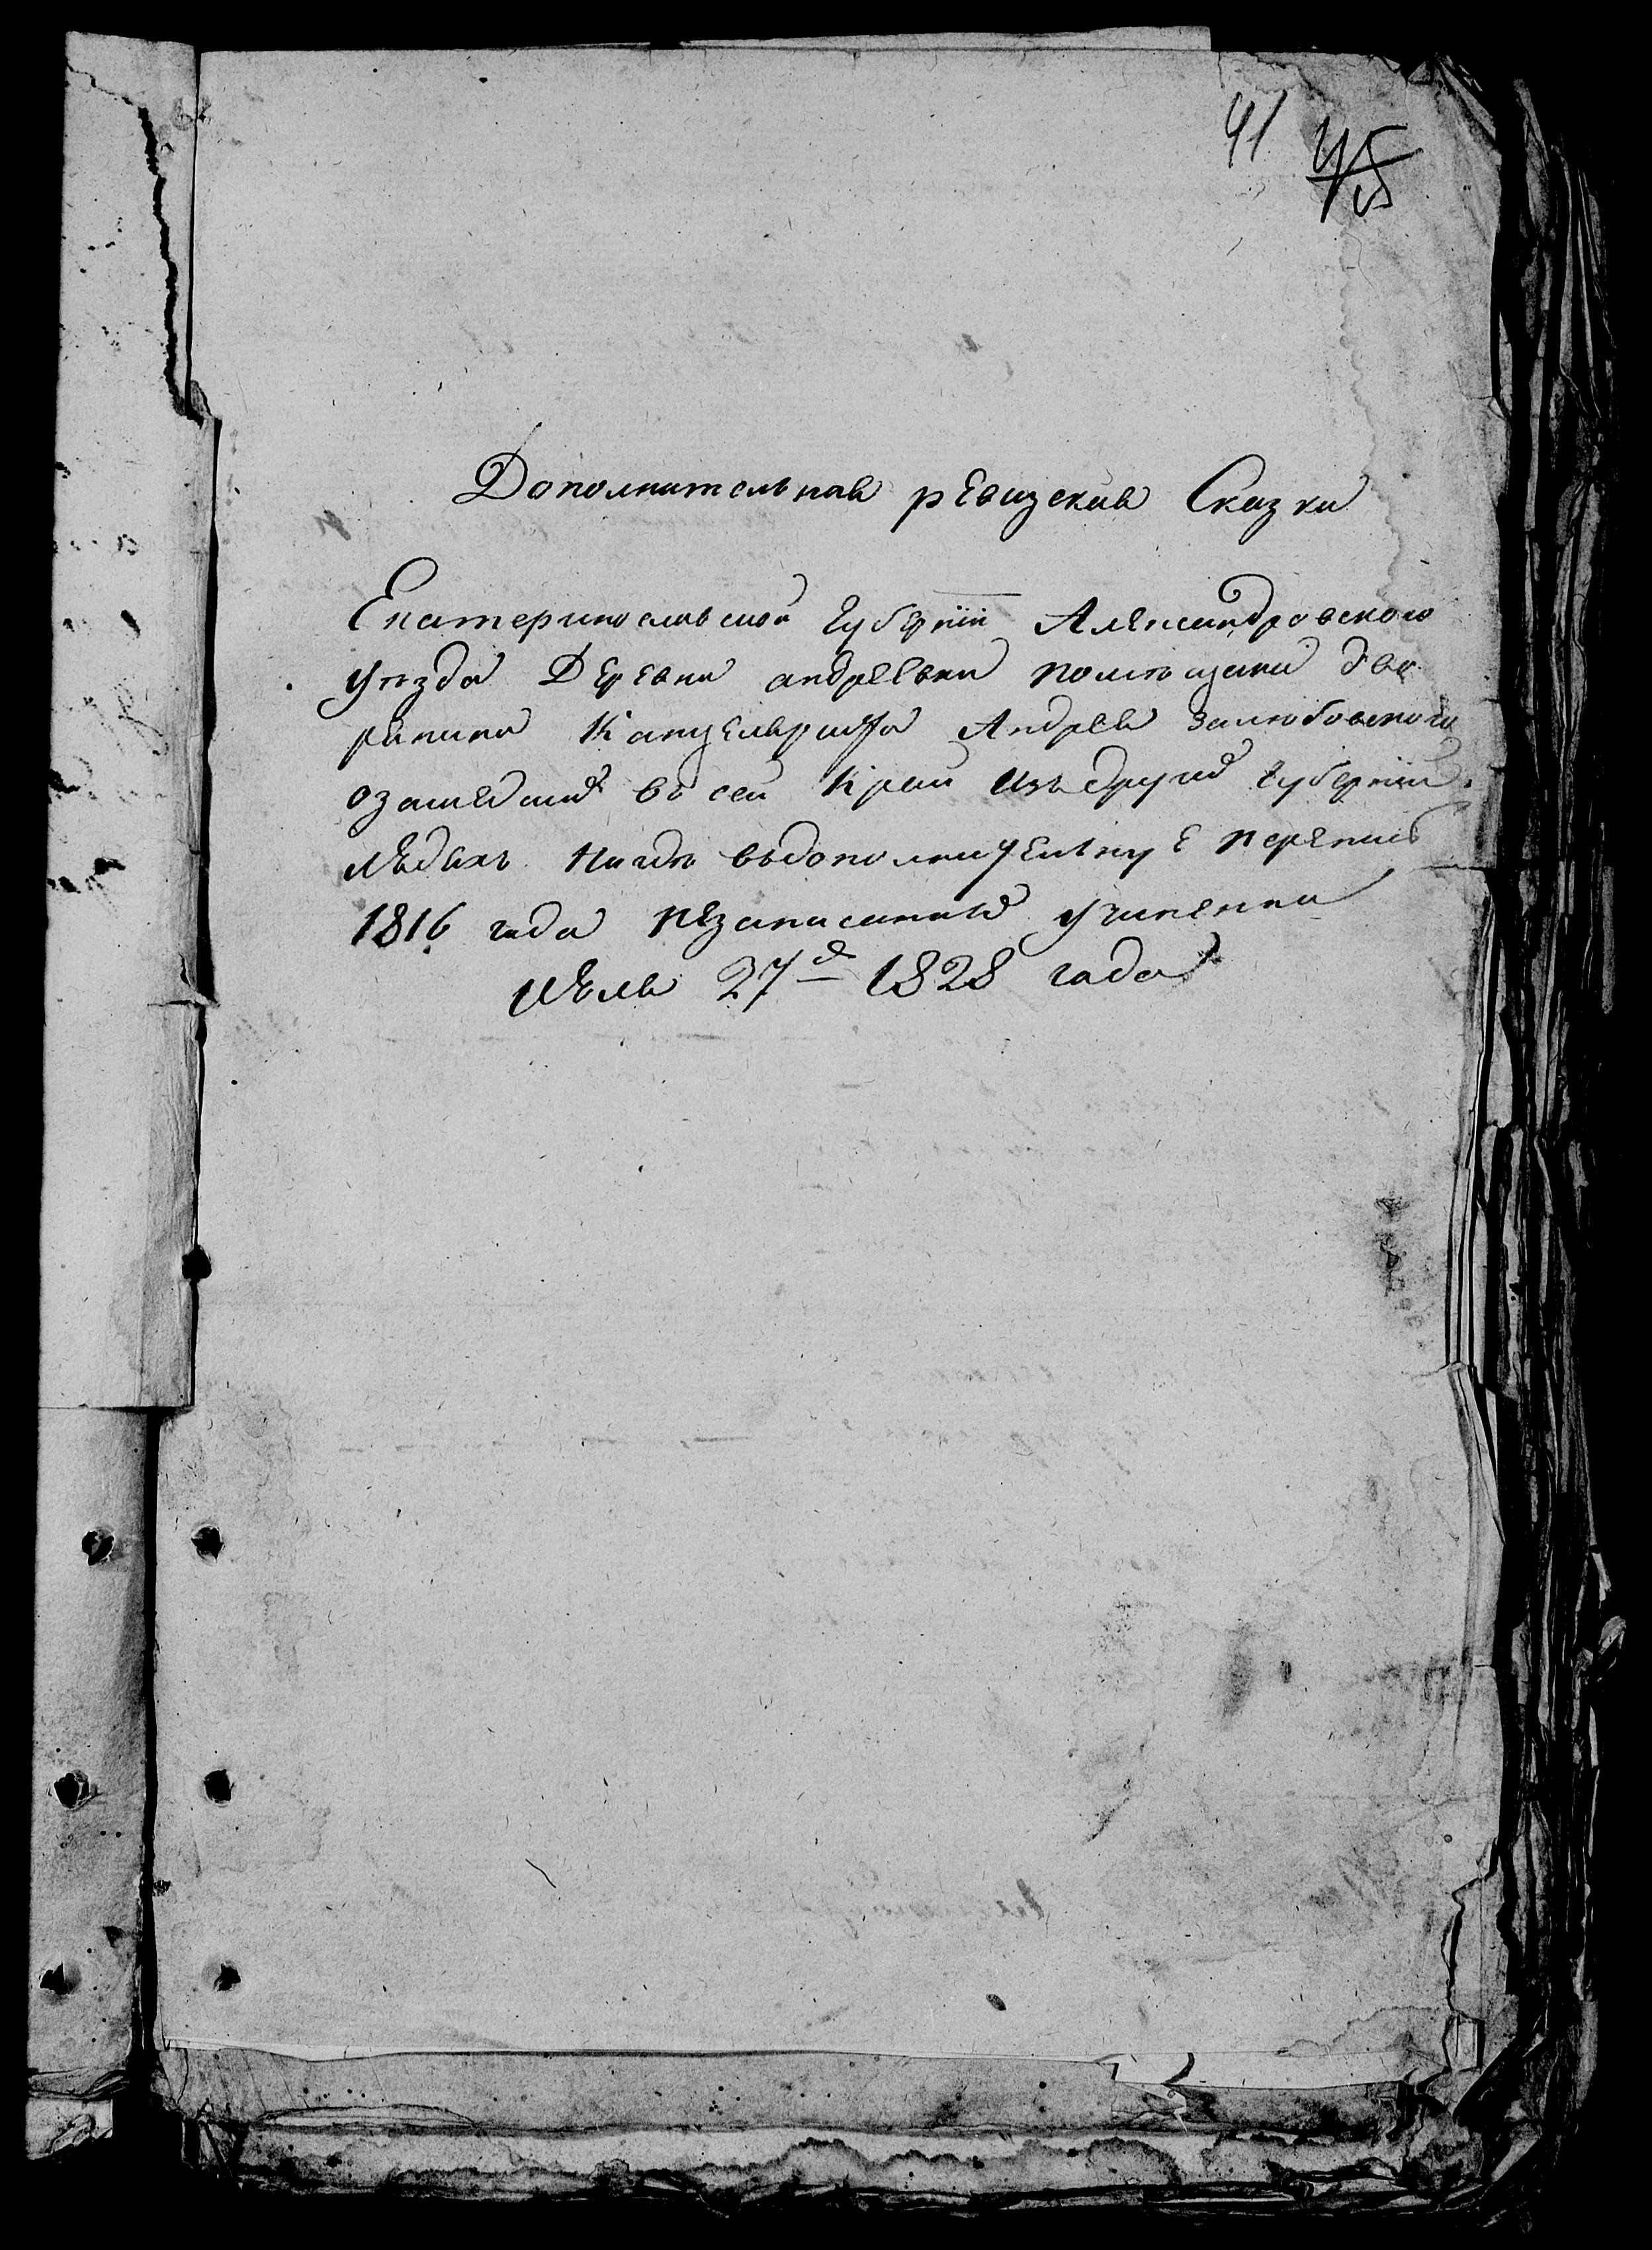 41 45
Дополнительная ревизская Сказка
Екатеринославской губернїи Александровского
уезда Деревни андреевки помещика дво
рянина Канцеляриста Андрея Залюбовского
озашедших во сей Край изъ других губернїи
людяхъ нигде въдополнительную перепись
1816 года незаписанных учинена
июля 27д 1828 года